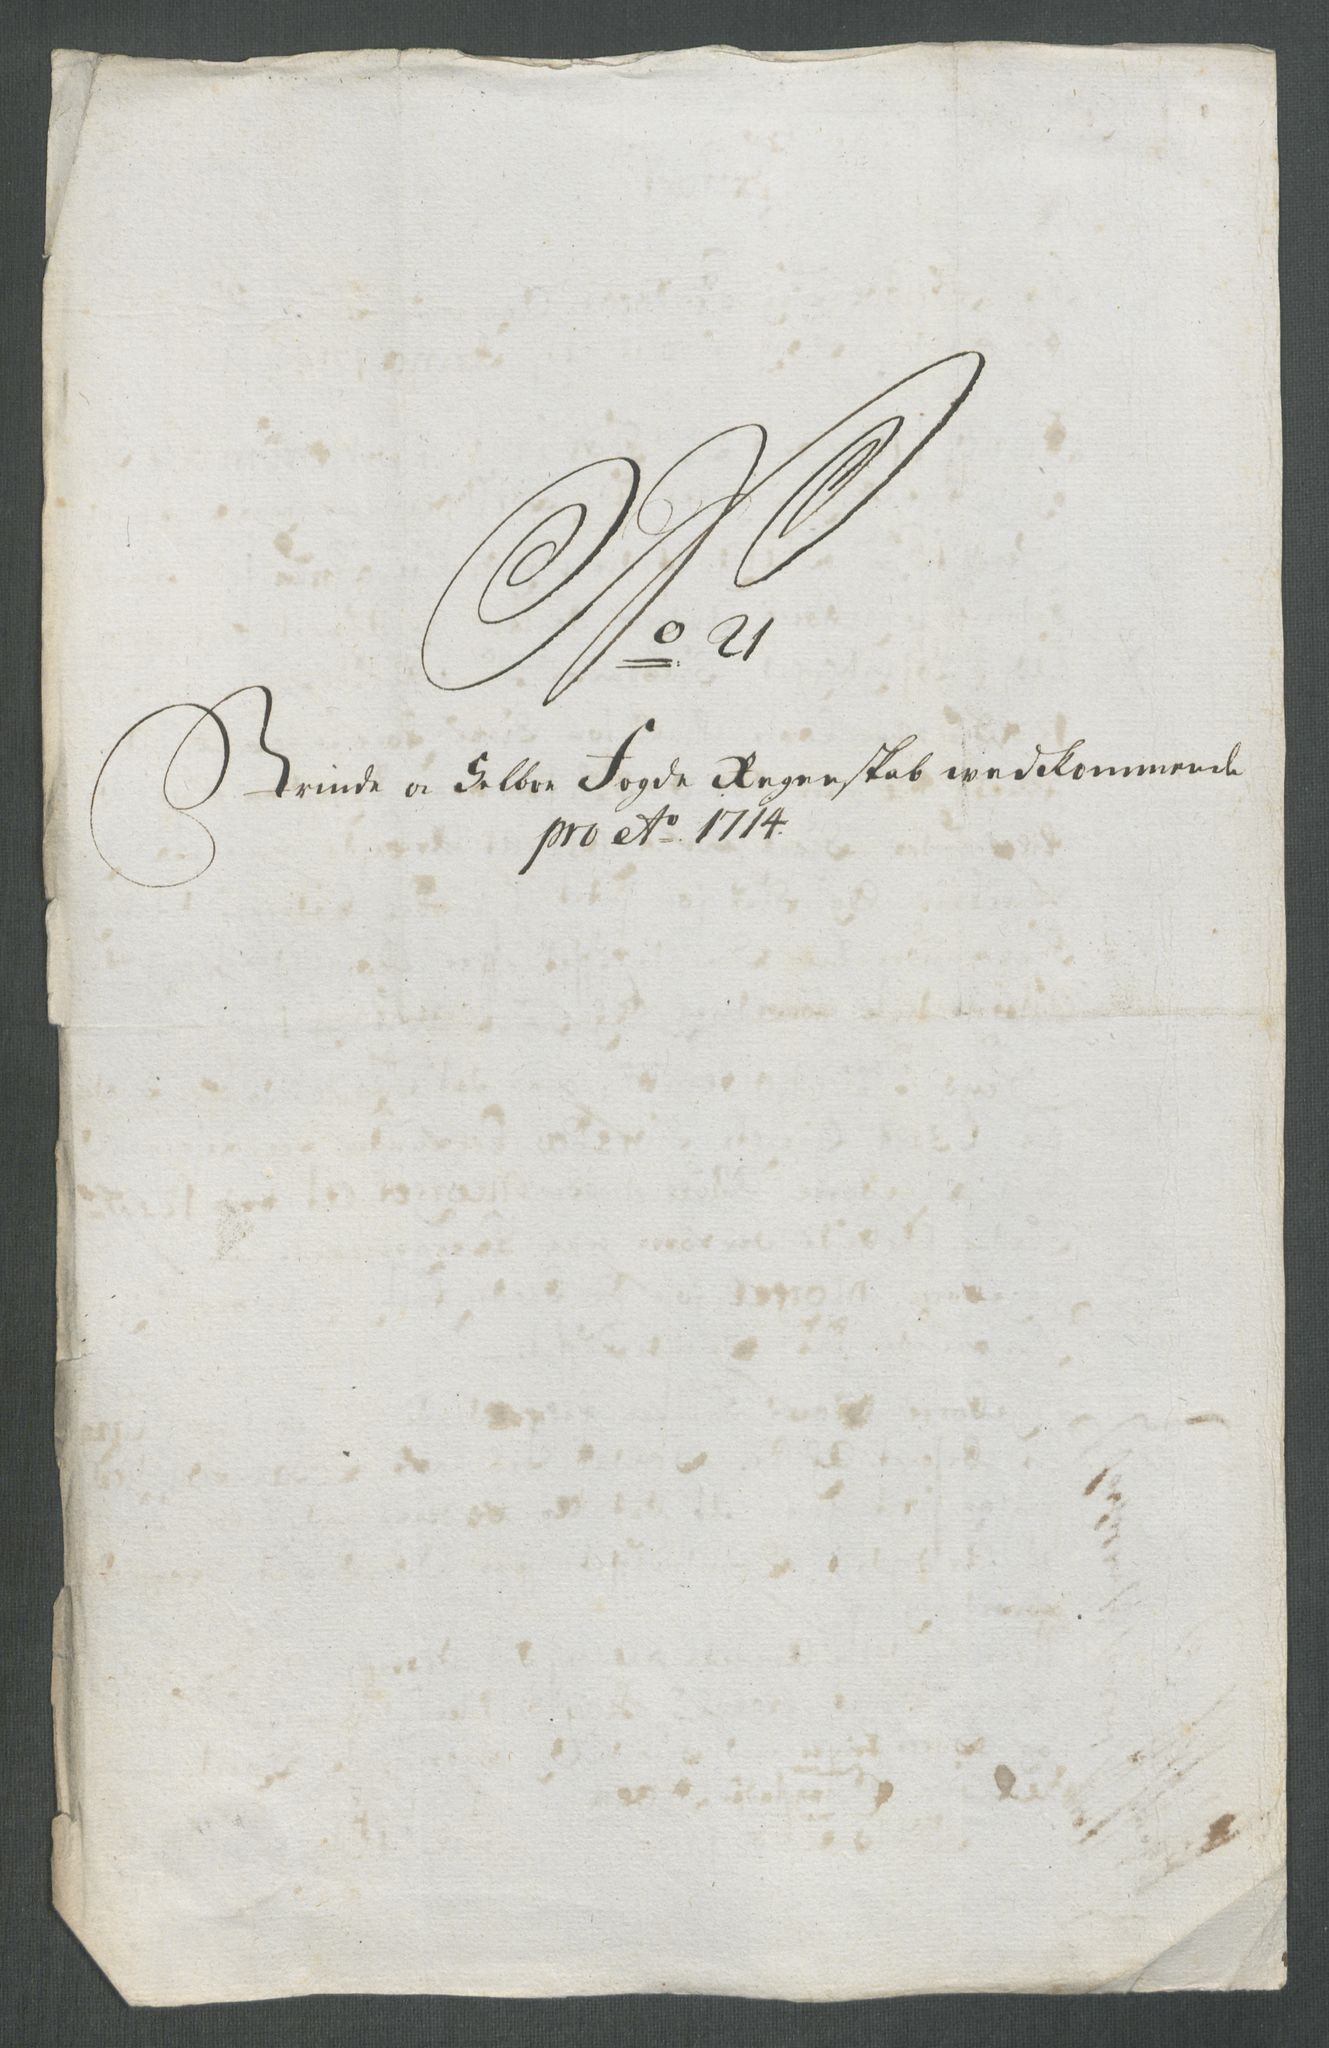 No 21
Strinde og Selboe Fogde Regenskab wedkommende
pro Ao. 1714.